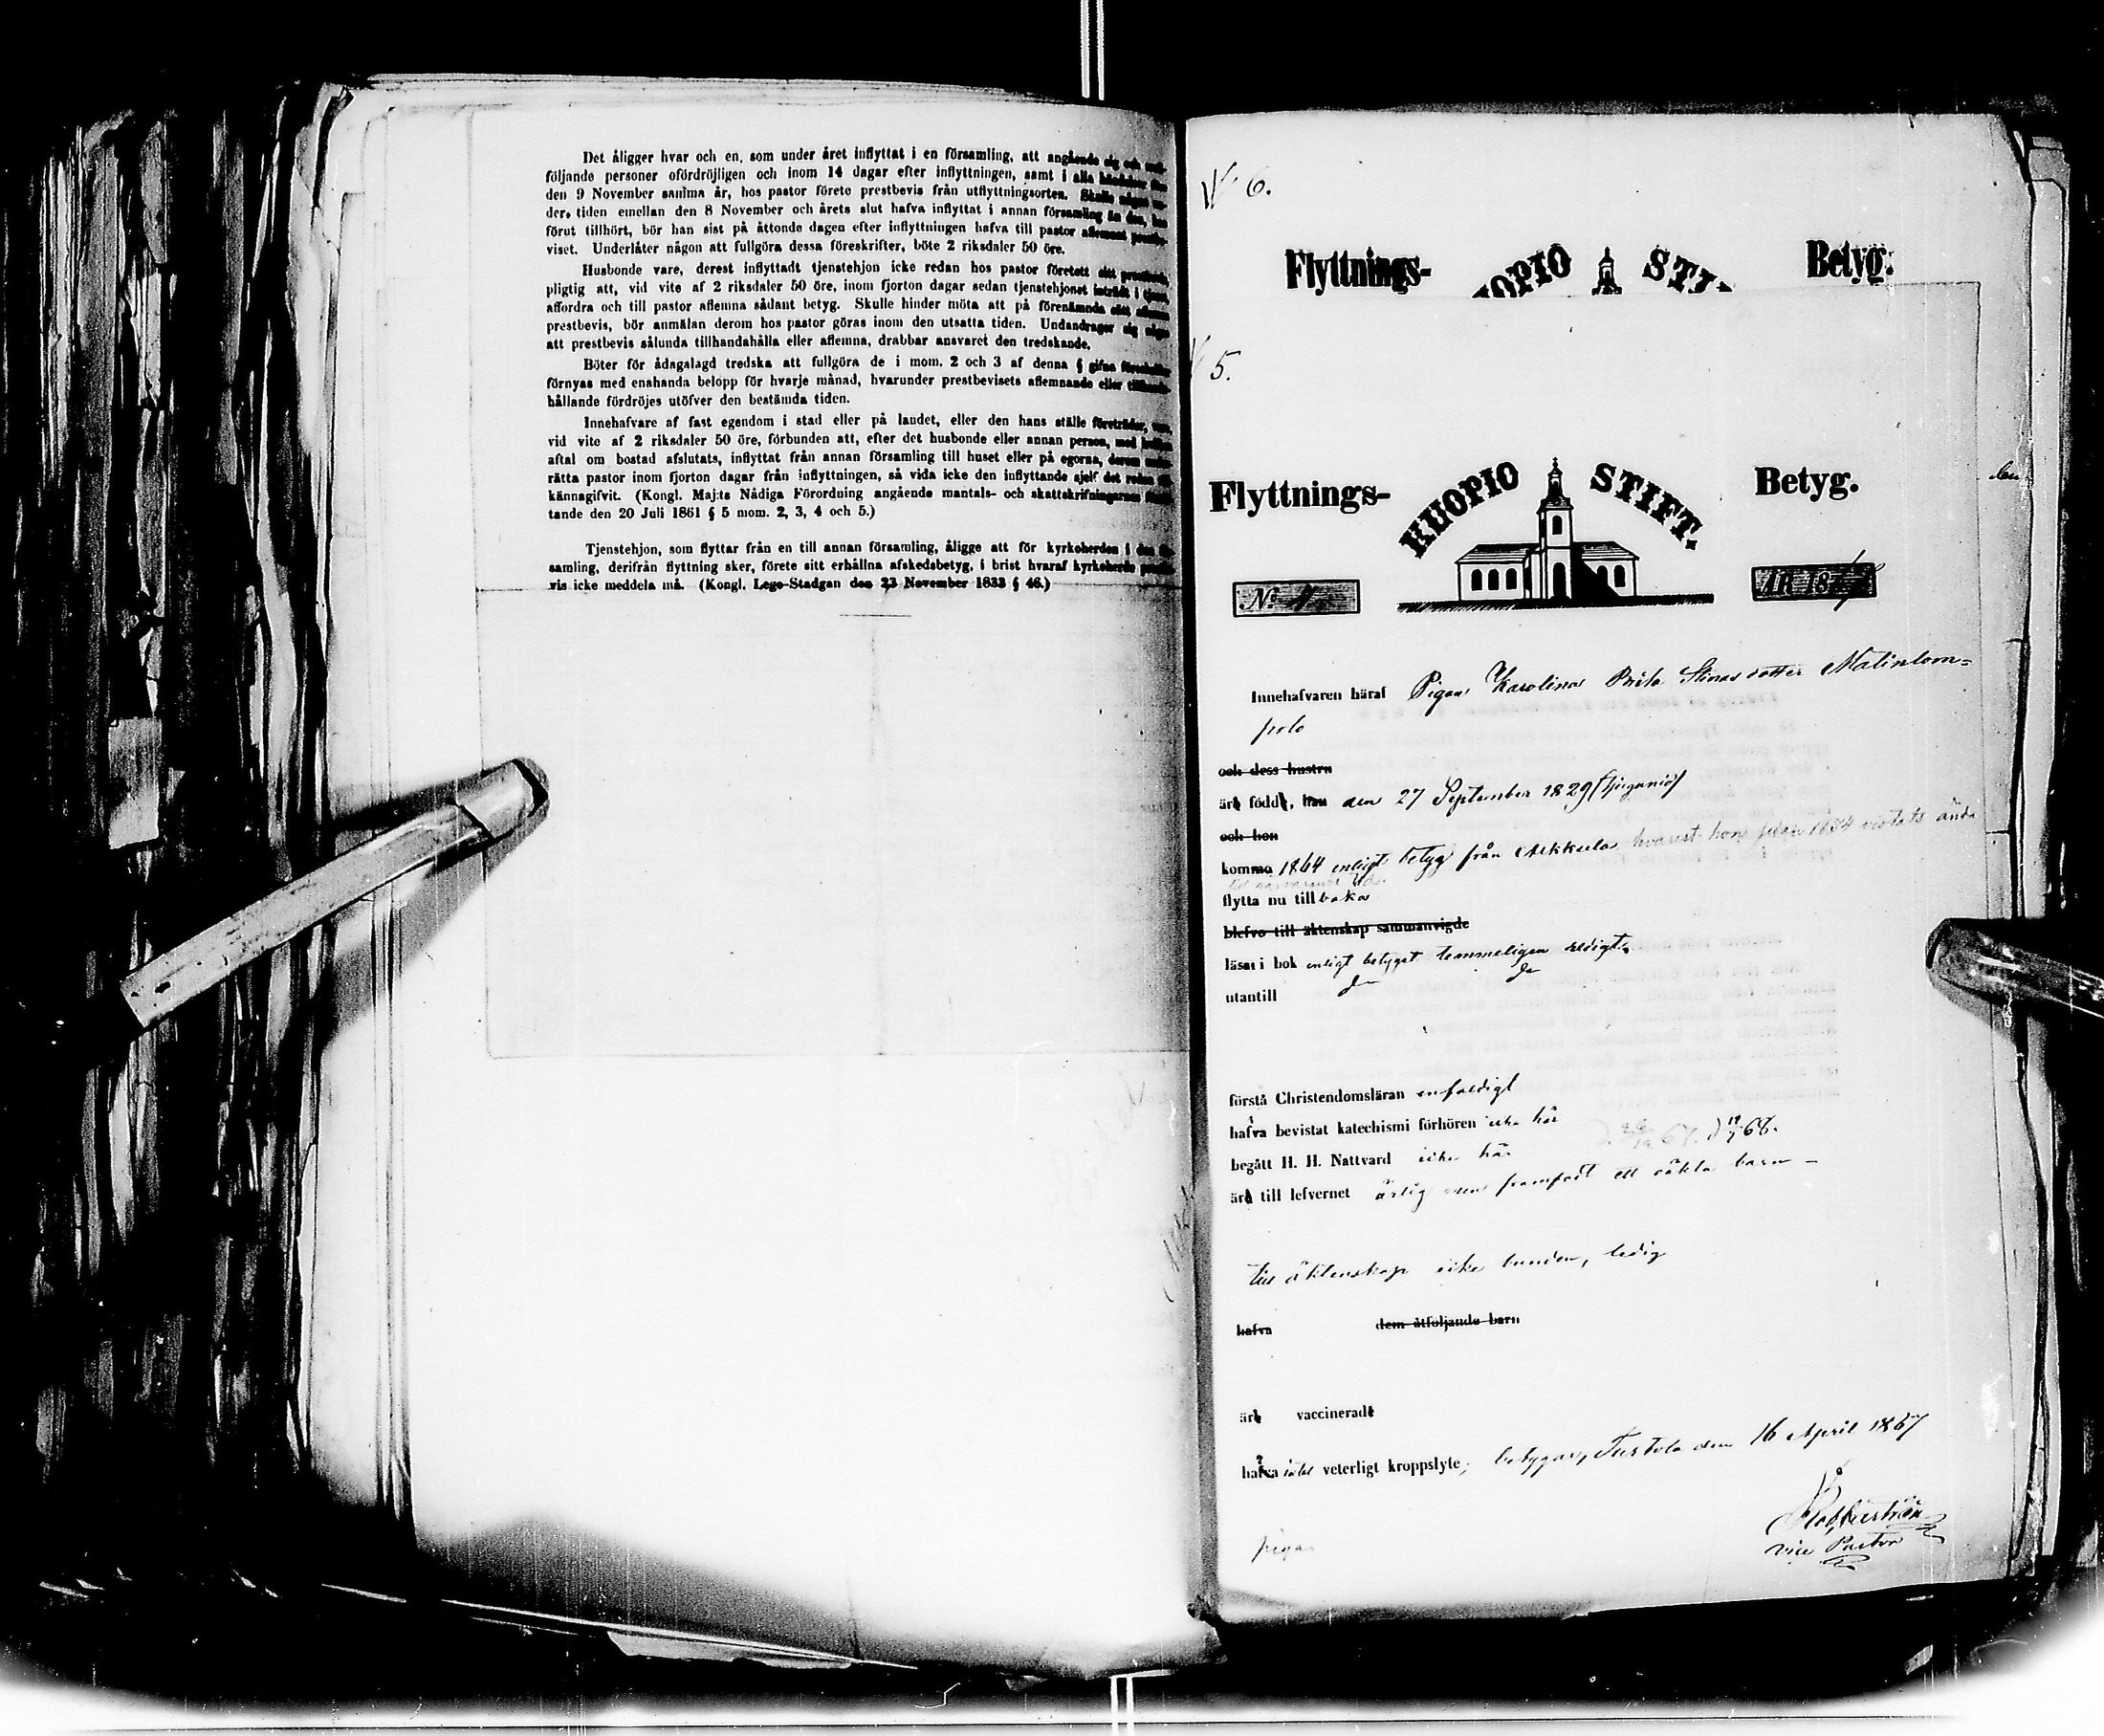 Det åligger hvar och en, som under året inflyttat i en församling, att angående sig och med-
följande personer ofördröjligen och inom 14 dagar efter inflyttningen, samt i alla händelser före
den 9 November samma år, hos pastor förete prestbevis från utflyttningsorten. Skulle någon un-
der, tiden emellan den 8 November och årets slut hafva inflyttat i annan församling än den, han
förut tillhört, bör han sist på åttonde dagen efter inflyttningen hafva till pastor aflemnat prestbe-
viset. Underlåter någon att fullgöra dessa föreskrifter, böte 2 riksdaler 50 öre.
Husbonde vare, derest inflyttadt tjenstehjon icke redan hos pastor företett sitt prestbevis,
pligtig att, vid vite af 2 riksdaler 50 öre, inom fjorton dagar sedan tjenstehjonet inträdt i tjenst,
affordra och till pastor aflemna sådant betyg. Skulle hinder möta att på förenämnda sätt aflemna
prestbevis, bör anmälan derom hos pastor göras inom den utsatta tiden. Undandrager sig någon
att prestbevis sålunda tillhandahålla eller aflemna, drabbar ansvaret den tredskande.
Böter för ådagalagd tredska att fullgöra de i mom. 2 och 3 af denna § gifna föreskrifter
förnyas med enahanda belopp för hvarje månad, hvarunder prestbevisets aflemnande eller tillhanda-
hållande fördröjes utöfver den bestämda tiden.
Innehafvare af fast egendom i stad eller på landet, eller den hans ställe företräder, vare,
vid vite af 2 riksdaler 50 öre, förbunden att, efter det husbonde eller annan person, med hvilken
aftal om bostad afslutats, inflyttat från annan församling till huset eller på egorna, derom under-
rätta pastor inom fjorton dagar från inflyttningen, så vida icke den inflyttande sjelf det redan till-
kännagifvit. (Kongl. Maj:ts Nådiga Förordning angående mantals- och skattskrifningarnes förrät-
tande den 20 Juli 1861 § 5 mom. 2, 3, 4 och 5.)
Tjenstehjon, som flyttar från en till annan församling, åligge att för kyrkoherden i den för-
samling, derifrån flyttning sker, förete sitt erhållna afskedsbetyg, i brist hvaraf kyrkoherde prestbe-
vis icke meddela må. (Kongl. Lego-Stadgan den 23 November 1833 § 46.)
N 6.
Flyttnings- UOPIO STI Betyg.
5.
Flyttnings- KUOPIO STIFT. Betyg.
No ÅR 18
Innehafvaren häraf Pigan Karolina Brita Stinasdotter Matinlom=
polo
och dess hustru
äro född, han den 27 September 1829
och hon
komma 1864 enligt betyg från hvarest hon sedan 1854 vistats ända
flytta nu tillbaka
blefvo till äktenskap sammanvigde
läsa i bok enligt betyget temmeligen redigt
utantill do do
förstå Christendomsläran enfaldigt
hafva bevistat katechismi förhören icke här
begått H. H. Nattvard icke här
äro till lefvernet ärlig men framfödt ett oäkta barn -
till äktenskap icke bunden, ledig
hafva dem åtföljande barn
äro vaccinerade
hafva intet veterligt kroppslyte; betygar, Turtola den 16 April 1867
vice Pastor
piga